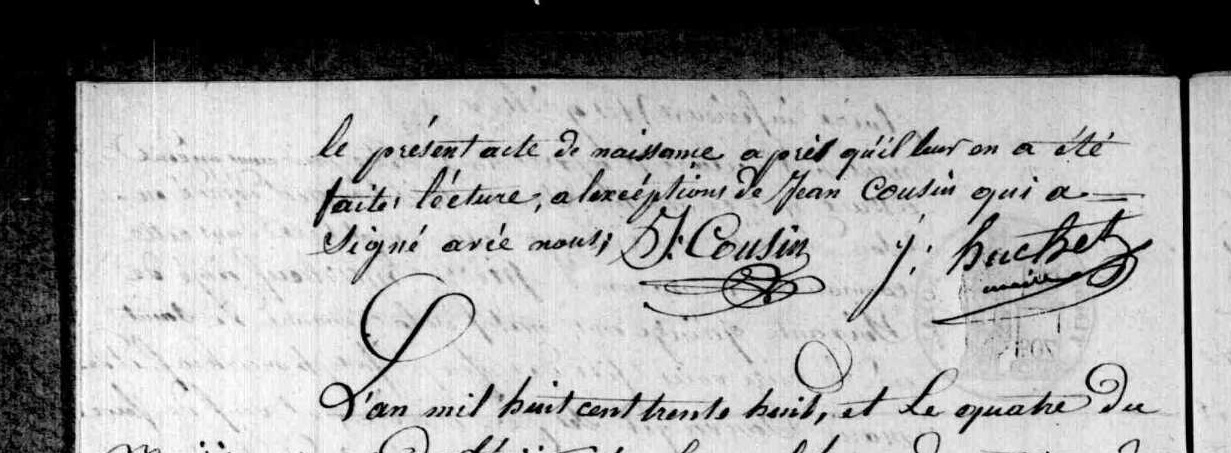 le présent acte de naissance après qu'il leur en a été
faite lécture, a lexcéptions de Jean Cousin qui a
Signé avée nous, J. Cousin J. huchet
maire
L'an mil huit cent trente huit, et Le quatre du